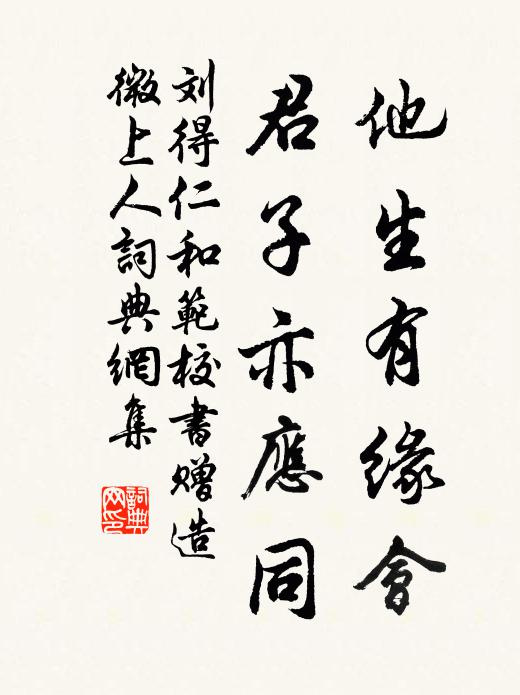 他生有緣會
君子亦應同
刘得仁和範校書赠造
微上人詞典網集
詞典网印